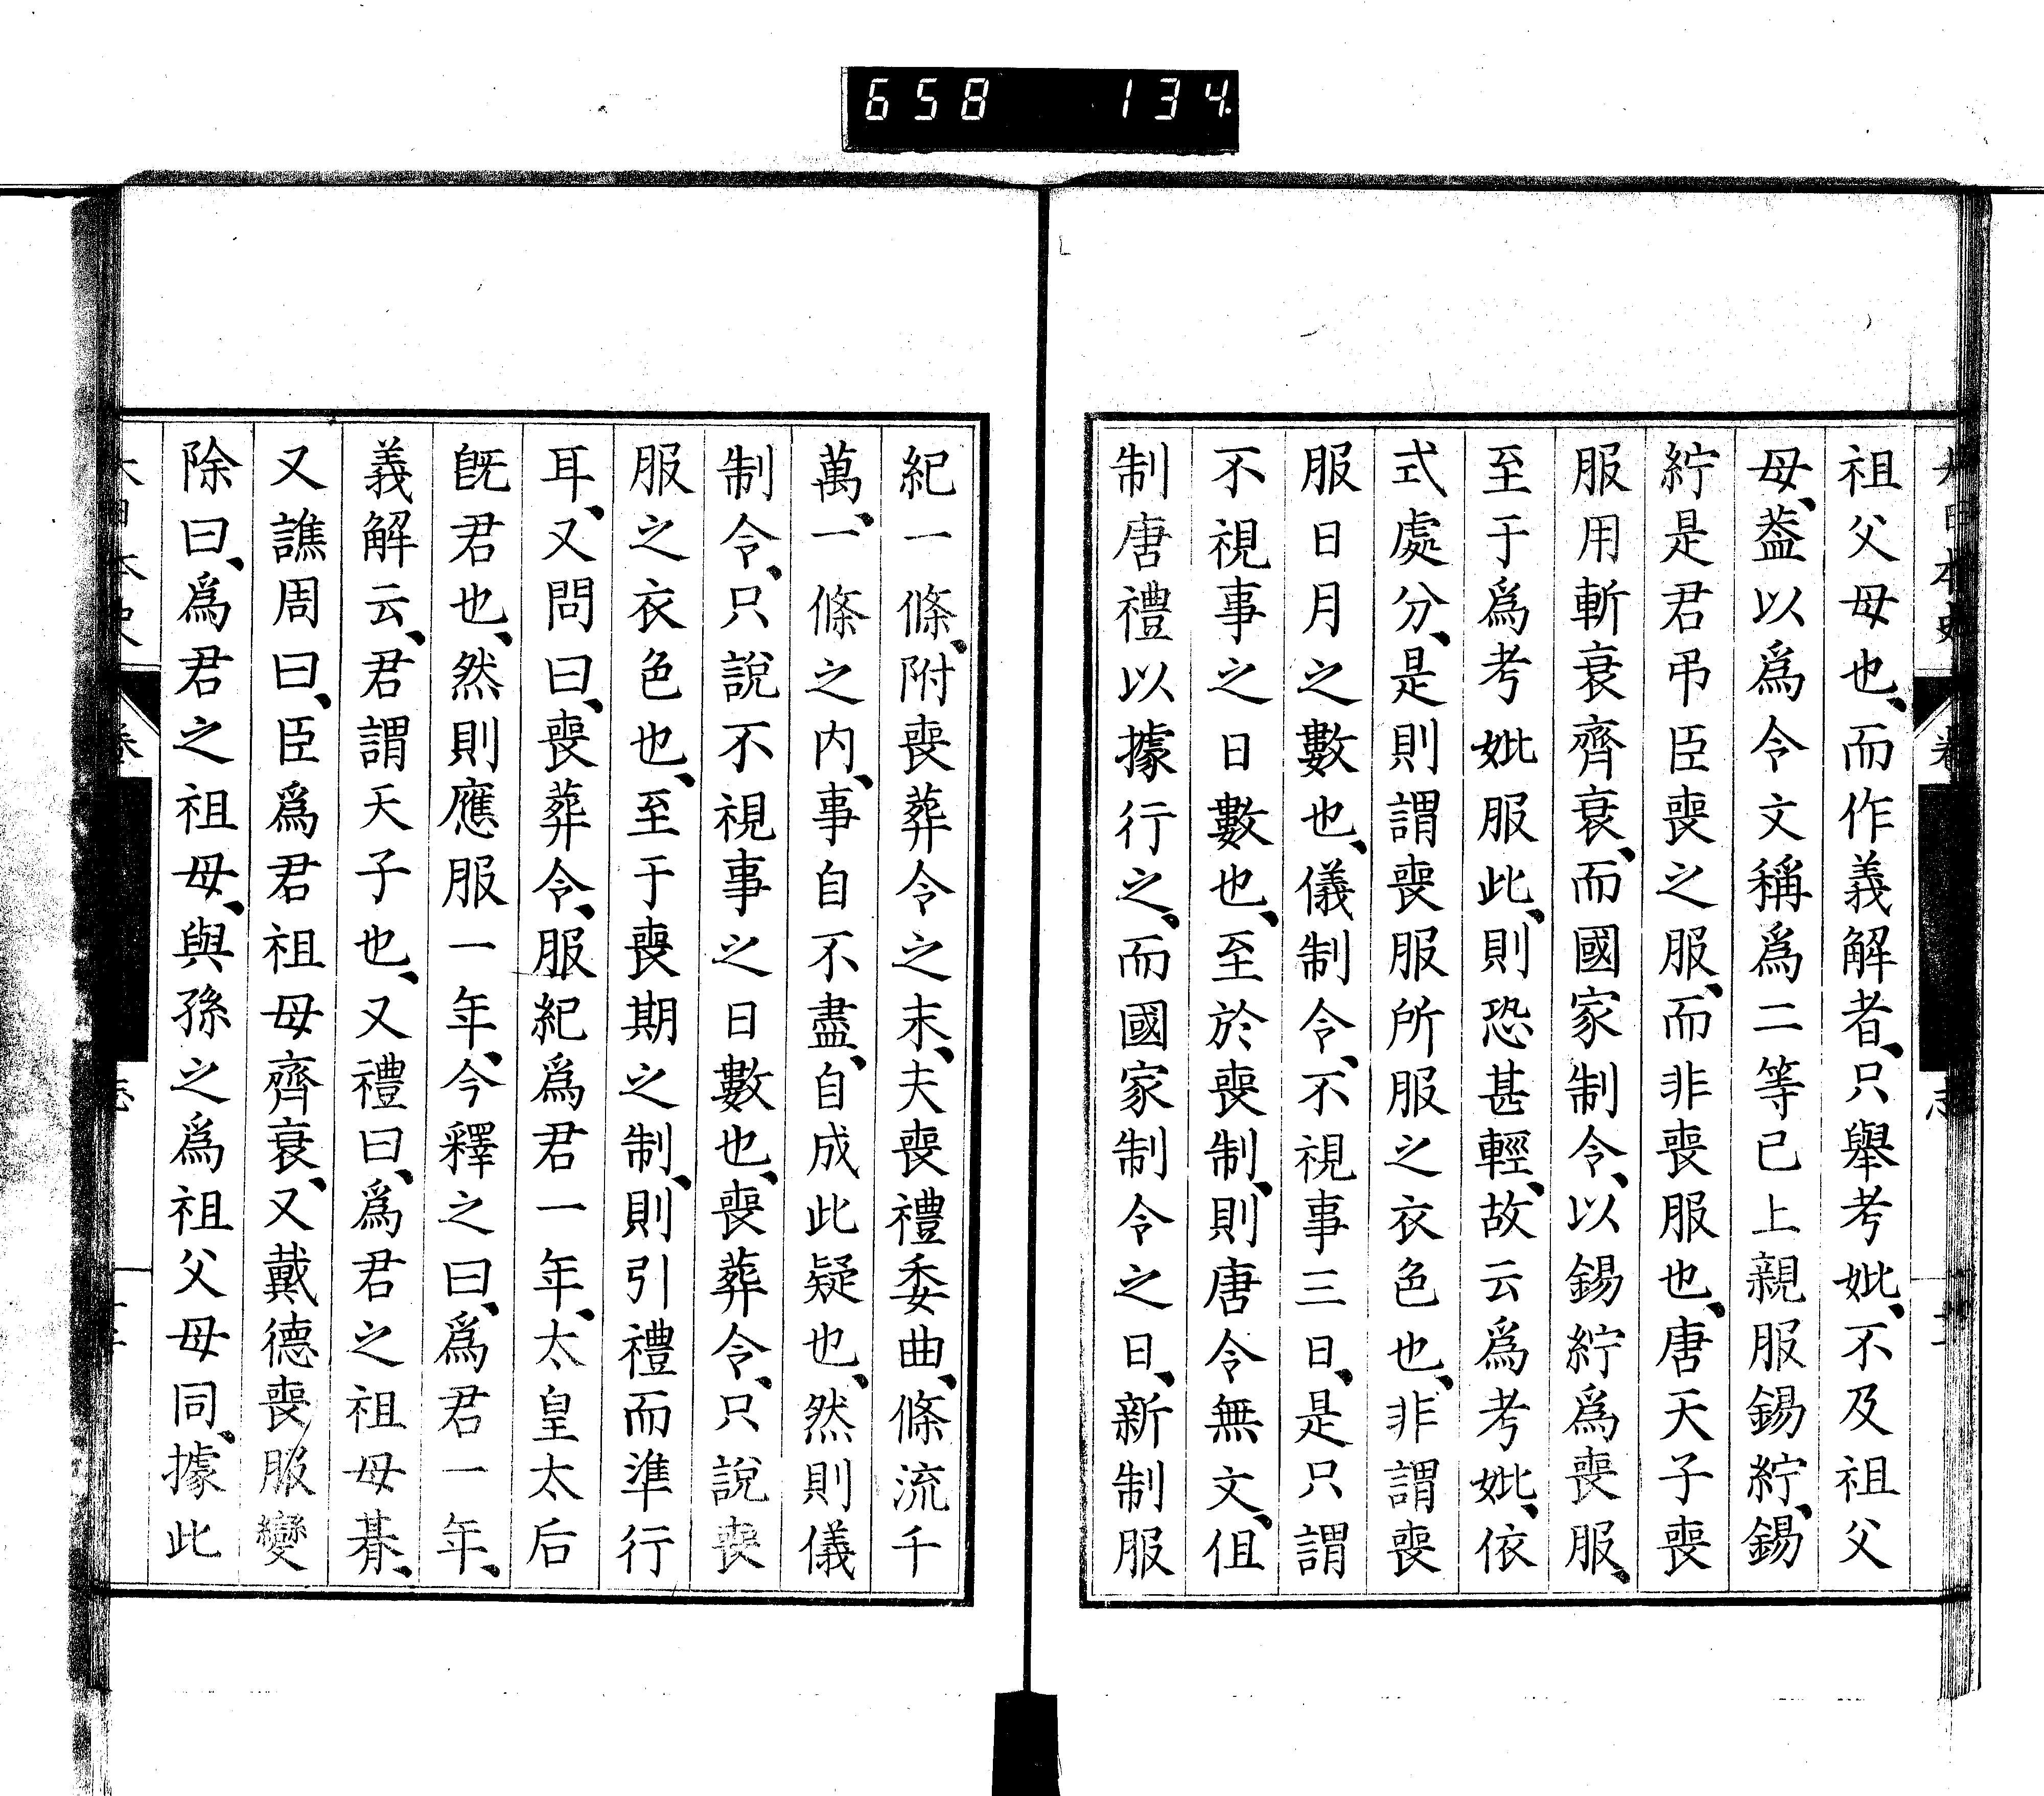 658 134
大日本史 卷 志
祖父母也、而作義解者、只擧考妣、不及祖父
母、葢以爲令文稱爲二等已上親服錫紵、錫
紵是君吊臣喪之服、而非喪服也、唐天子喪
服用斬衰齊衰、而國家制令、以錫紵爲喪服、
至于爲考妣服此、則恐甚輕、故云爲考妣、依
式處分、是則謂喪服所服之衣色也、非謂喪
服日月之數也、儀制令、不視事三日、是只謂
不視事之日數也、至於喪制、則唐令無文、但
制唐禮以據行之、而國家制令之日、新制服
紀一條、附喪葬令之末、夫喪禮委曲、條流千
萬、一條之内、事自不盡、自成此疑也、然則儀
制令、只說不視事之日數也、喪葬令、只說喪
服之衣色也、至于喪期之制、則引禮而準行
耳、又問曰、喪葬令、服紀爲君一年、太皇太后
旣君也、然則應服一年、今釋之曰、爲君一年、
義解云、君謂天子也、又禮曰、爲君之祖母朞、
又譙周曰、臣爲君祖母齊衰、又戴德喪服變
除曰、爲君之祖母、與孫之爲祖父母同、據此
大日本史 卷 志